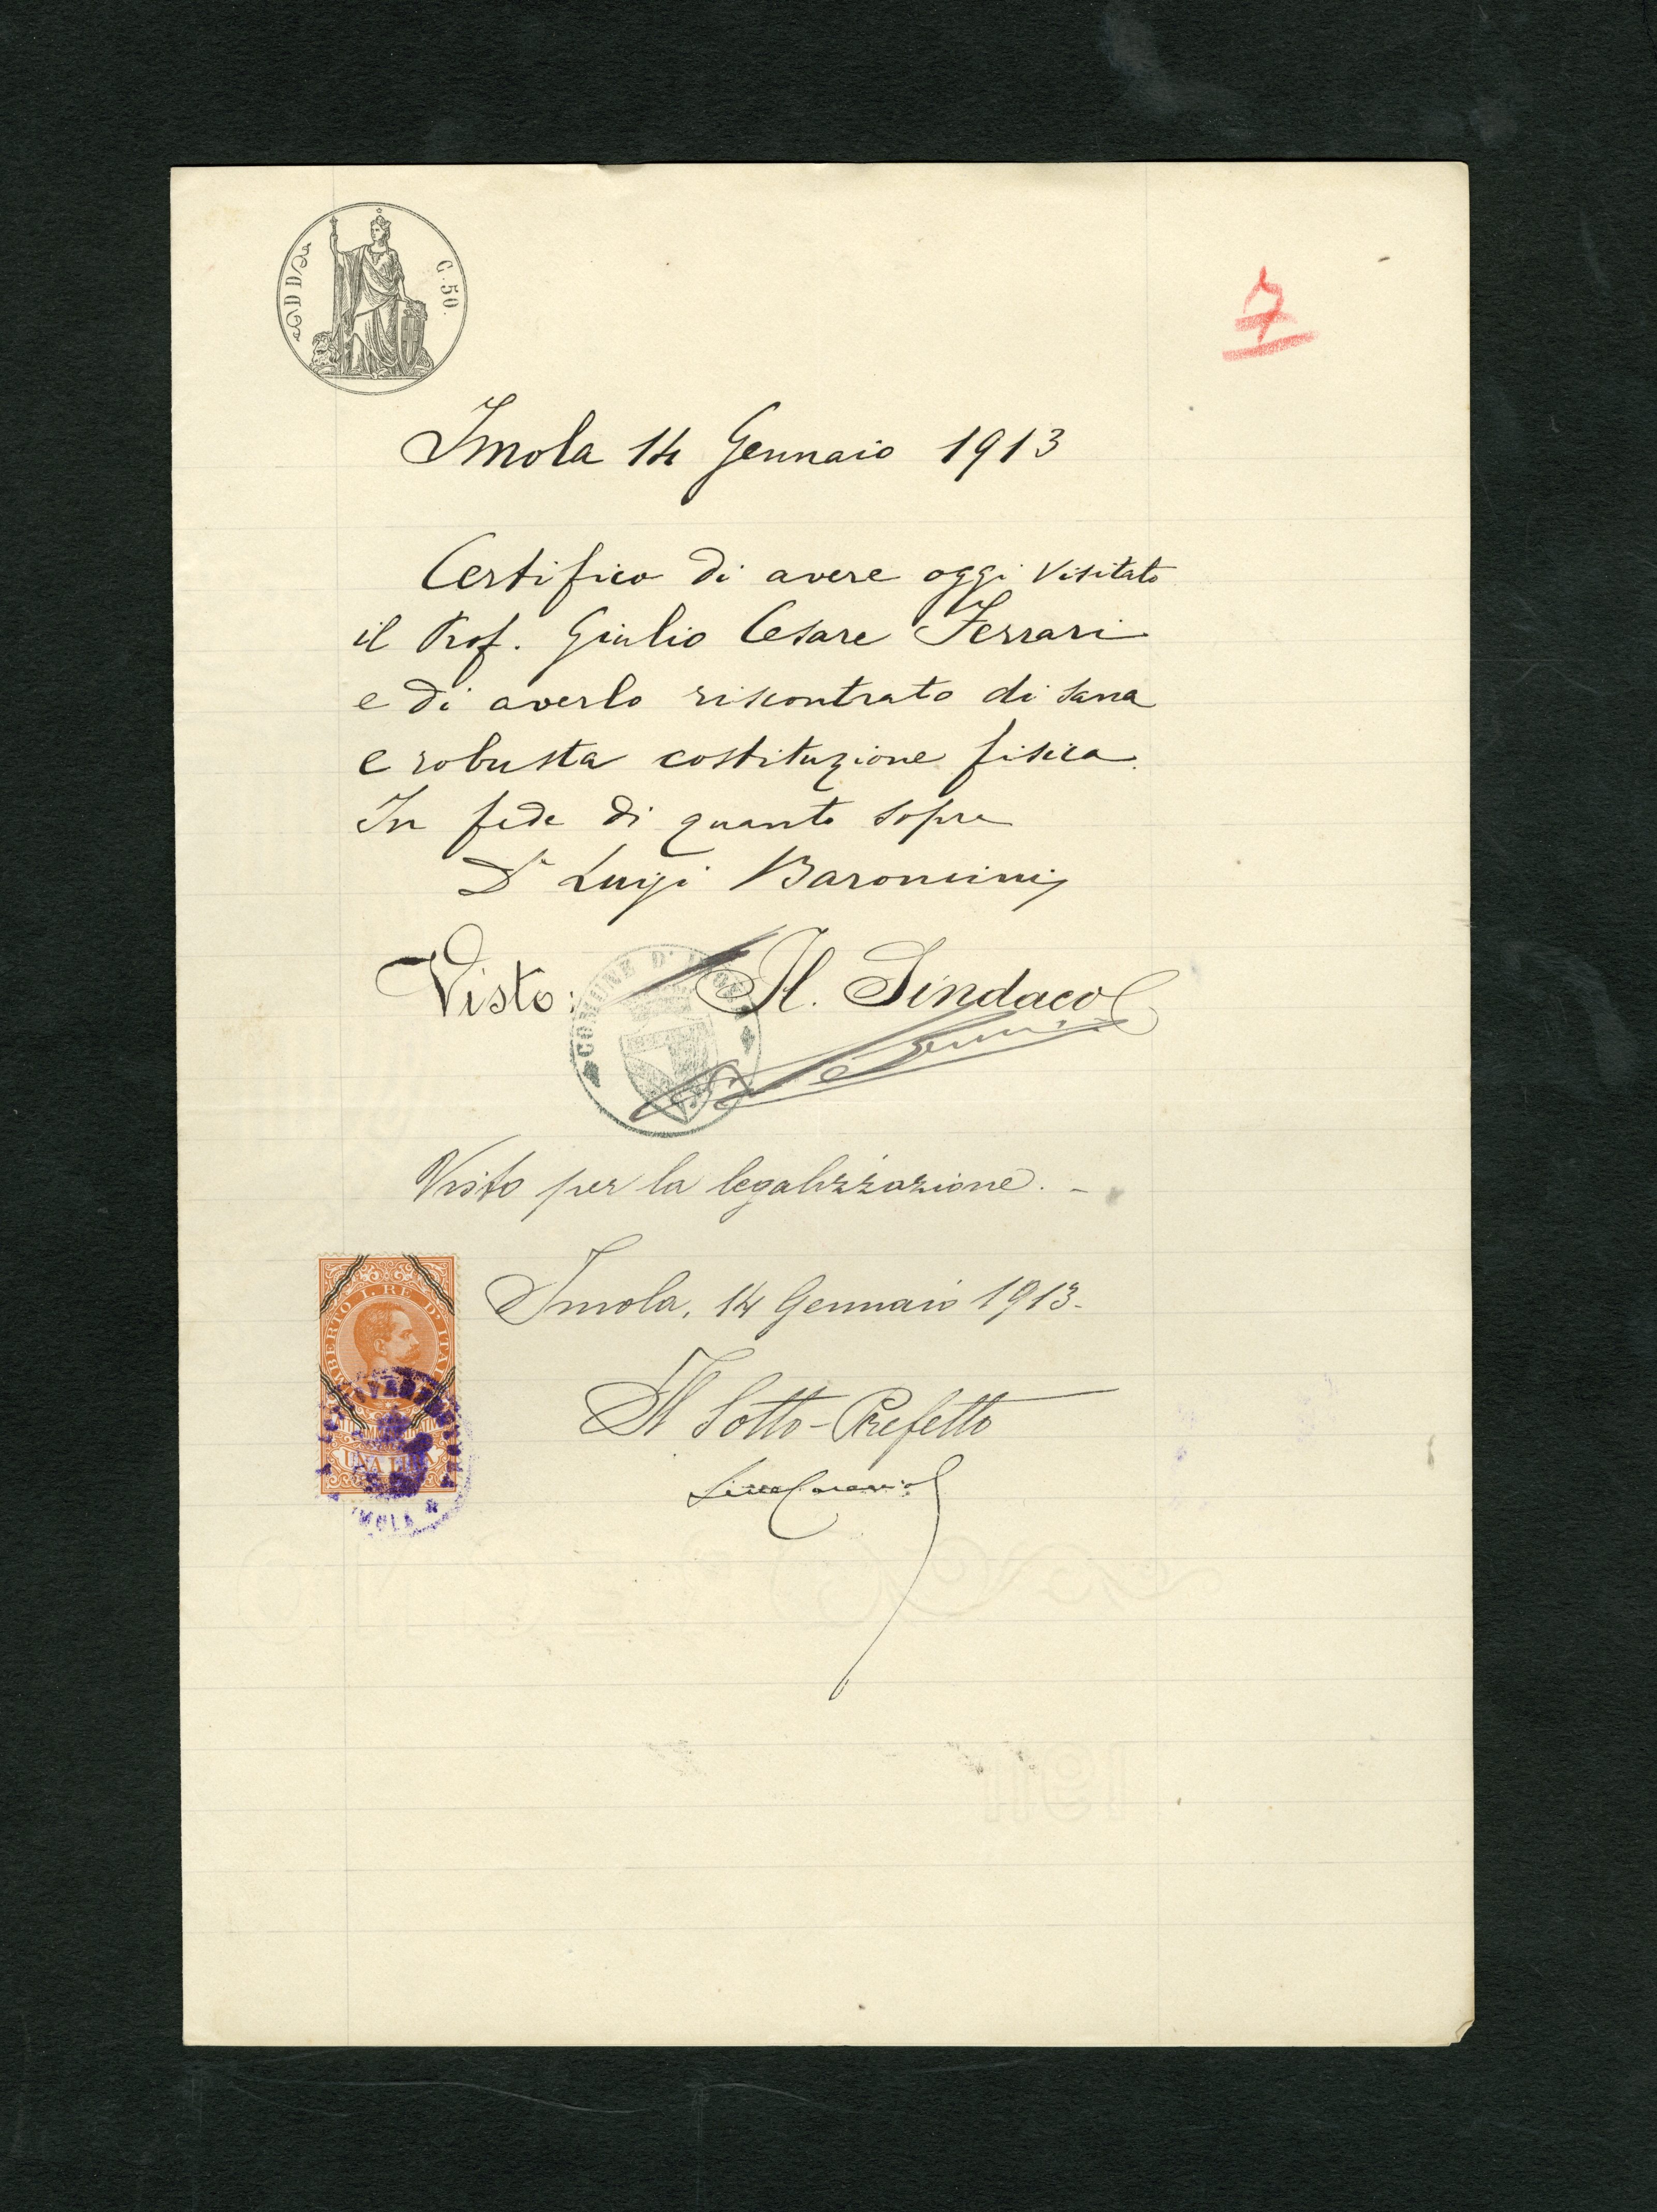 C. 50.
7
Imola 14 Gennaio 1913
Certifico di avere oggi visitato
il Prof. Giulio Cesare Ferrari
e di averlo riscontrato di sana
e robusta costituzione fisica.
In fede di quanto sopra
Dr Luigi Baroncini
Visto: Il. Sindaco
COMUNE D' IMOLA
Visto per la legalizzazione. -
Imola, 14 Gennaio 1913.
UMBERTO I. RE D'ITALIA
UNA LIRA
IMOLA
Il Sotto-Prefetto
1911